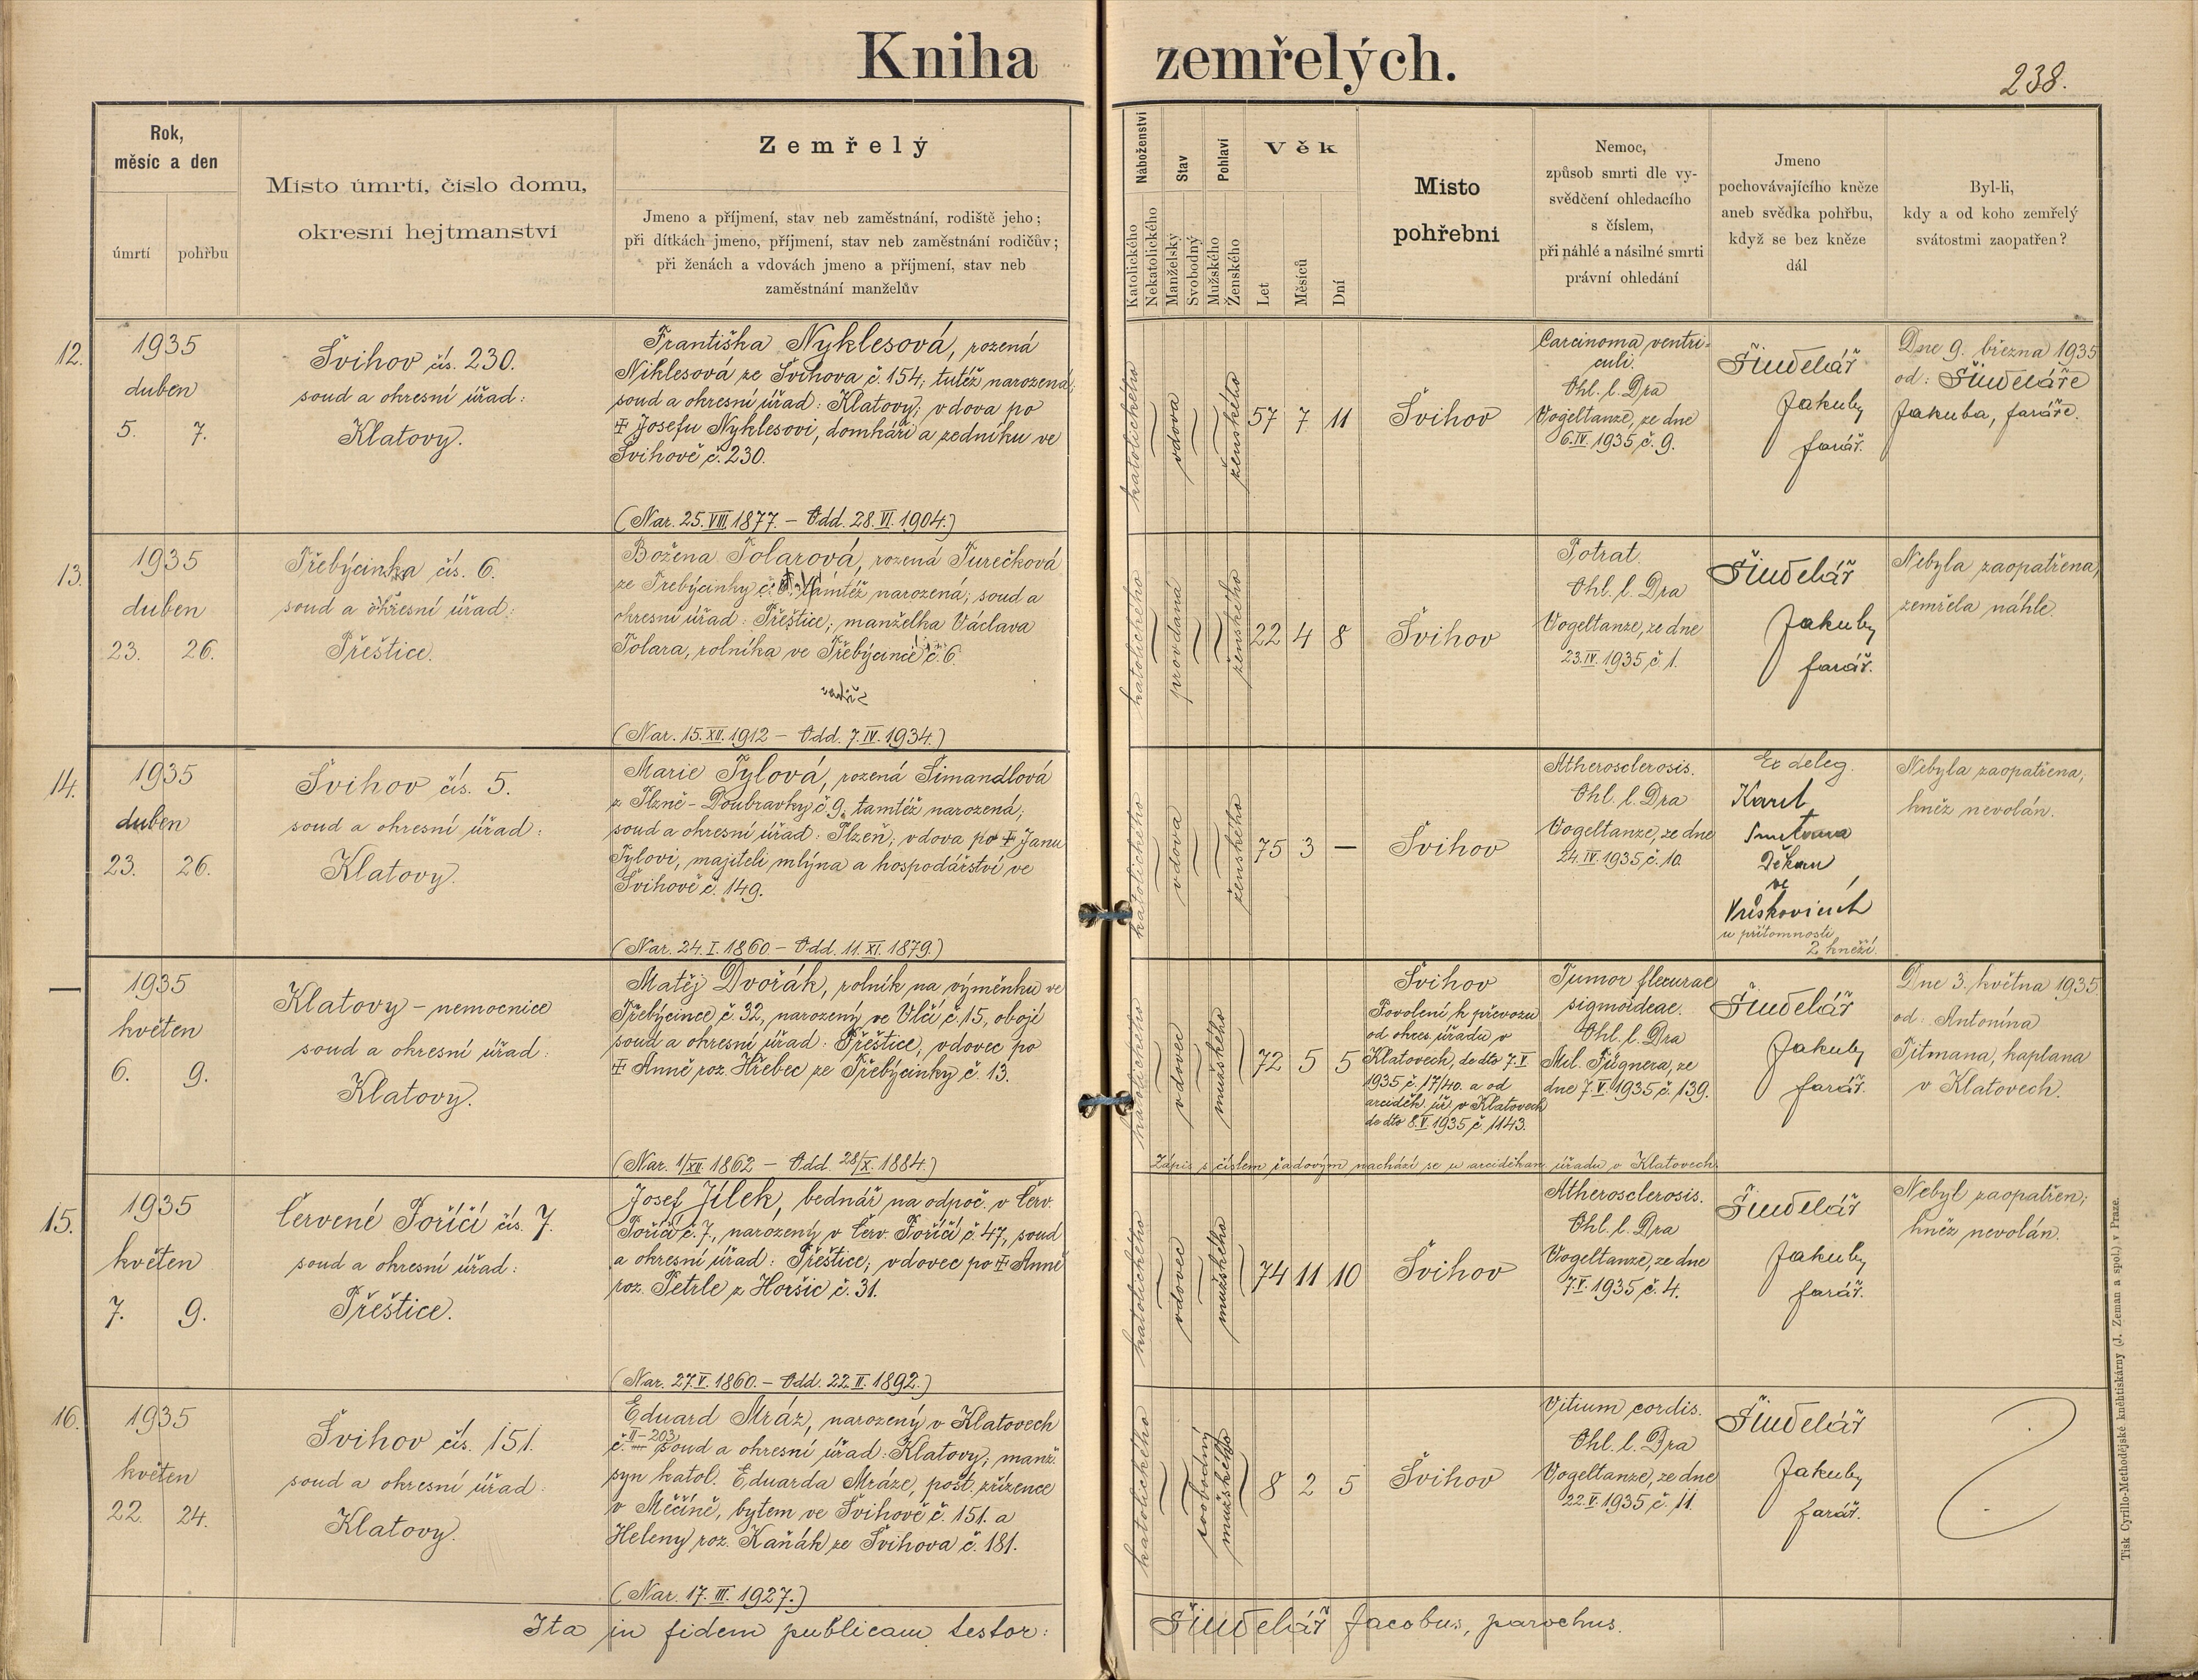 Kniha zemřelých.
238.
Rok,
měsíc a den
úmrtí
pohřbu
Místo úmrtí, číslo domu,
okresní hejtmanství
Zemřelý
Jmeno a příjmení, stav neb zaměstnání, rodiště jeho;
při dítkách jmeno, příjmení, stav neb zaměstnání rodičův;
při ženách a vdovách jmeno a příjmení, stav neb
zaměstnání manželův
Náboženství
Katolického
Nekatolického
Stav
Manželský
Svobodný
Pohlaví
Mužského
Ženského
Věk
Let
Měsíců
Dní
Místo
pohřební
Nemoc,
způsob smrti dle vy-
svědčení ohledacího
s číslem,
při náhlé a násilné smrti
právní ohledání
Jmeno
pochovávajícího kněze
aneb svědka pohřbu,
když se bez kněze
dál
Byl-li,
kdy a od koho zemřelý
svátostmi zaopatřen?
12.
1935
duben
5. 7.
Švihov čís. 230.
soud a okresní úřad:
Klatovy.
Františka Nyklesová, rozená
Niklesová ze Švihova č. 154, tutéž narozená;
soud a okresní úřad: Klatovy; vdova po
‡ Josefu Nyklesovi, domkáři a zedníku ve
Švihově č. 230.
(Nar. 25. VIII. 1877. – Odd. 28. VI. 1904.)
katolického
vdova
ženského
57 7 11
Švihov
Carcinoma ventri-
culi.
Ohl. l. Dra
Vogeltanze, ze dne
6. IV. 1935, č. 9.
Šindelář
Jakub,
farář.
Dne 9. března 1935
od: Šindeláře
Jakuba, faráře.
13.
1935
duben
23. 26.
Třebýcinka čís. 6.
soud a okresní úřad:
Přeštice.
Božena Tolarová, rozená Turečková
ze Třebýcinky č. tamtéž narozená; soud a
okresní úřad: Přeštice; manželka Václava
Tolara, rolníka ve Třebýcince č. 6.
(Nar. 15. XII. 1912 – Odd. 7. IV. 1934.)
katolického
provdaná
ženského
22 4 8
Švihov
Potrat.
Ohl. l. Dra
Vogeltanze, ze dne
23. IV. 1935, č. 1.
Šindelář
Jakub,
farář.
Nebyla zaopatřena,
zemřela náhle.
14.
1935
duben
23. 26.
Švihov čís. 5.
soud a okresní úřad:
Klatovy.
Marie Tylová, rozená Šimandlová
z Plzně - Doubravky č. 9, tamtéž narozená;
soud a okresní úřad: Plzeň; vdova po ‡ Janu
Tylovi, majiteli mlýna a hospodářství ve
Švihově č. 149.
(Nar. 24. I. 1860 – Odd. 11. XI. 1879.)
katolického
vdova
ženského
75 3 –
Švihov
Atherosclerosis.
Ohl. l. Dra
Vogeltanze, ze dne
24. IV. 1935, č. 10.
Ex deleg.
Karel
Smetana
Děkan
ve
Vřeskovicích
u přítomnosti
2 kněží.
Nebyla zaopatřena;
kněz nevolán.
–
1935
květen
6. 9.
Klatovy – nemocnice
soud a okresní úřad:
Klatovy.
Matěj Dvořák, rolník na výměnku ve
Třebýcince č. 32, narozený ve Vlčí č. 15, obojí
soud a okresní úřad: Přeštice; vdovec po
‡ Anně roz. Hřebec ze Třebýcinky č. 13.
(Nar. 1/XII. 1862 – Odd. 28/X. 1884.)
katolického
vdovec
mužského
72 5 5
Švihov
Povolení k převozu
od okres. úřadu v
Klatovech, de dto 7. V.
1935 č. 17/40. a od
arciděk. úř. v Klatovech
de dto 8. V. 1935 č. 1143.
Tumor flexurae
sigmoideae.
Ohl. l. Dra
Mil. Fügnera, ze
dne 7. V. 1935 č. 139.
Šindelář
Jakub,
farář.
Dne 3. května 1935
od: Antonína
Pitmana, kaplana
v Klatovech.
Zápis s číslem řadovým nachází se u arciděkan. úřadu v Klatovech.
15.
1935
květen
7. 9.
Červené Poříčí čís. 7.
soud a okresní úřad:
Přeštice.
Josef Jílek, bednář na odpoč. v Červ.
Poříčí č. 7, narozený v Červ. Poříčí č. 47, soud
a okresní úřad: Přeštice; vdovec po ‡ Anně
roz. Petrle z Horšic č. 31.
(Nar. 27. V. 1860. – Odd. 22. II. 1892.)
katolického
vdovec
mužského
74 11 10
Švihov
Atherosclerosis.
Ohl. l. Dra
Vogeltanze, ze dne
7. V. 1935, č. 4.
Šindelář
Jakub,
farář.
Nebyl zaopatřen;
kněz nevolán.
16.
1935
květen
22. 24.
Švihov čís. 151.
soud a okresní úřad:
Klatovy.
Eduard Mráz, narozený v Klatovech
č. II – 203, soud a okresní úřad: Klatovy; manž.
syn katol. Eduarda Mráze, pošt. zřízence
v Měčíně, bytem ve Švihově č. 151. a
Heleny roz. Kaňák ze Švihova č. 181.
(Nar. 17. III. 1927.)
katolického
svobodný
mužského
8 2 5
Švihov
Vitium cordis.
Ohl. l. Dra
Vogeltanze, ze dne
22. V. 1935 č. 11.
Šindelář
Jakub,
farář.
Ita in fidem publicam testor: Šindelář Jacobus, parochus.
Tisk Cyrillo-Methodějské kněhtiskárny (J. Zeman a spol.) v Praze.